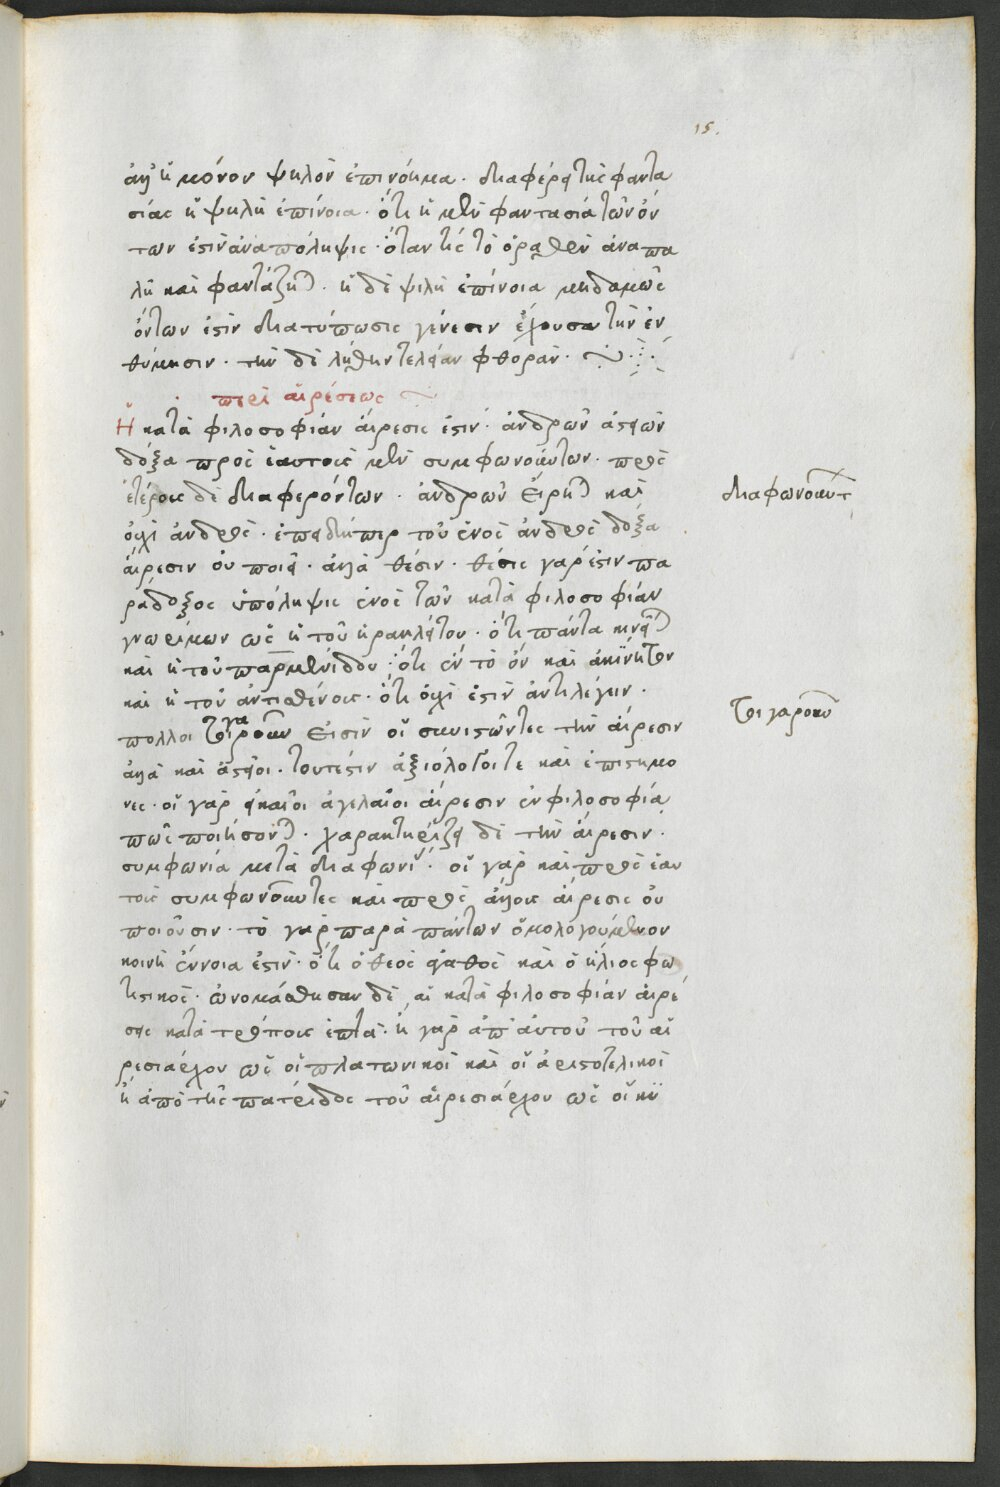 15.
ἀλλ' ἢ μόνον ψιλὸν ἐπινόημα. διαφέρει τῆς φαντα
σίας ἡ ψιλὴ ἐπίνοια. ὅτι ἡ μὲν φαντασία τῶν ὄν
των ἐστὶν ἀναπόληψις. ὅταν τις τὸ ὁραθὲν ἀναπο
λῆ καὶ φαντάζηται. ἡ δὲ ψιλὴ ἐπίνοια μηδαμῶς
ὄντων ἐστὶν διατύπωσις γένεσιν ἔχουσα τὴν ἐν
θύμησιν. τὴν δὲ λήθην τελείαν φθοράν.
περὶ αἱρέσεως
Ἡ κατὰ φιλοσοφίαν αἵρεσις ἐστὶν. ἀνδρῶν ἀστείων
δόξα πρὸς ἑαυτοὺς μὲν συμφωνούντων. πρὸς
ἑτέρους δὲ διαφερόντων. ἀνδρῶν εἴρηται καὶ
διαφωνούντ
οὐχὶ ἀνδρὸς. ἐπειδήπερ τοῦ ἑνὸς ἀνδρὸς δόξα
αἵρεσιν οὐ ποιεῖ. ἀλλὰ θέσιν. θέσις γάρ ἐστιν πα
ράδοξος ὑπόληψις ἑνὸς τῶν κατὰ φιλοσοφίαν
γνωρίμων ὡς ἡ τοῦ ἡρακλείτου. ὅτι πάντα κινεῖται
καὶ ἡ τοῦ παρμενίδου. ὅτι ἓν τὸ ὂν καὶ ἀκίνητον
καὶ ἡ τοῦ ἀντισθένους. ὅτι οὐχὶ ἐστὶν ἀντιλέγειν.
πολλοι τοιγαροῦν εἰσὶν οἱ συνιστῶντες τὴν αἵρεσιν
τοιγαροῦν
ἀλλὰ καὶ ἀστεῖοι. τουτέστιν ἀξιόλογοί τε καὶ ἐπιστήμο
νες. οἱ γὰρ εἰκαῖοι ἀγελαῖοι αἵρεσιν ἐν φιλοσοφία
πῶς ποιήσονται. χαρακτηρίζει δὲ τὴν αἵρεσιν.
συμφωνία μετὰ διαφωνίας. οἱ γὰρ καὶ πρὸς ἑαυ
τοὺς συμφωνοῦντες καὶ πρὸς ἄλλους αἵρεσις οὐ
ποιοῦσιν. τὸ γὰρ παρὰ πάντων ὁμολογούμενον
κοινὴ ἔννοια ἐστὶν. ὅτι ὁ θεὸς ἀγαθὸς καὶ ὁ ἥλιος φω
τιστικὸς. ὠνομάσθησαν δὲ αἱ κατὰ φιλοσοφίαν αἱρέ
σεις κατὰ τρόπους ἑπτὰ. ἢ γὰρ ἀπ' αὐτοῦ τοῦ αἱ
ρεσιάρχου ὡς οἱ πλατωνικοὶ καὶ οἱ ἀριστοτελικοὶ
ἢ ἀπὸ τῆς πατρίδος τοῦ αἱρεσιάρχου ὡς οἱ κυ